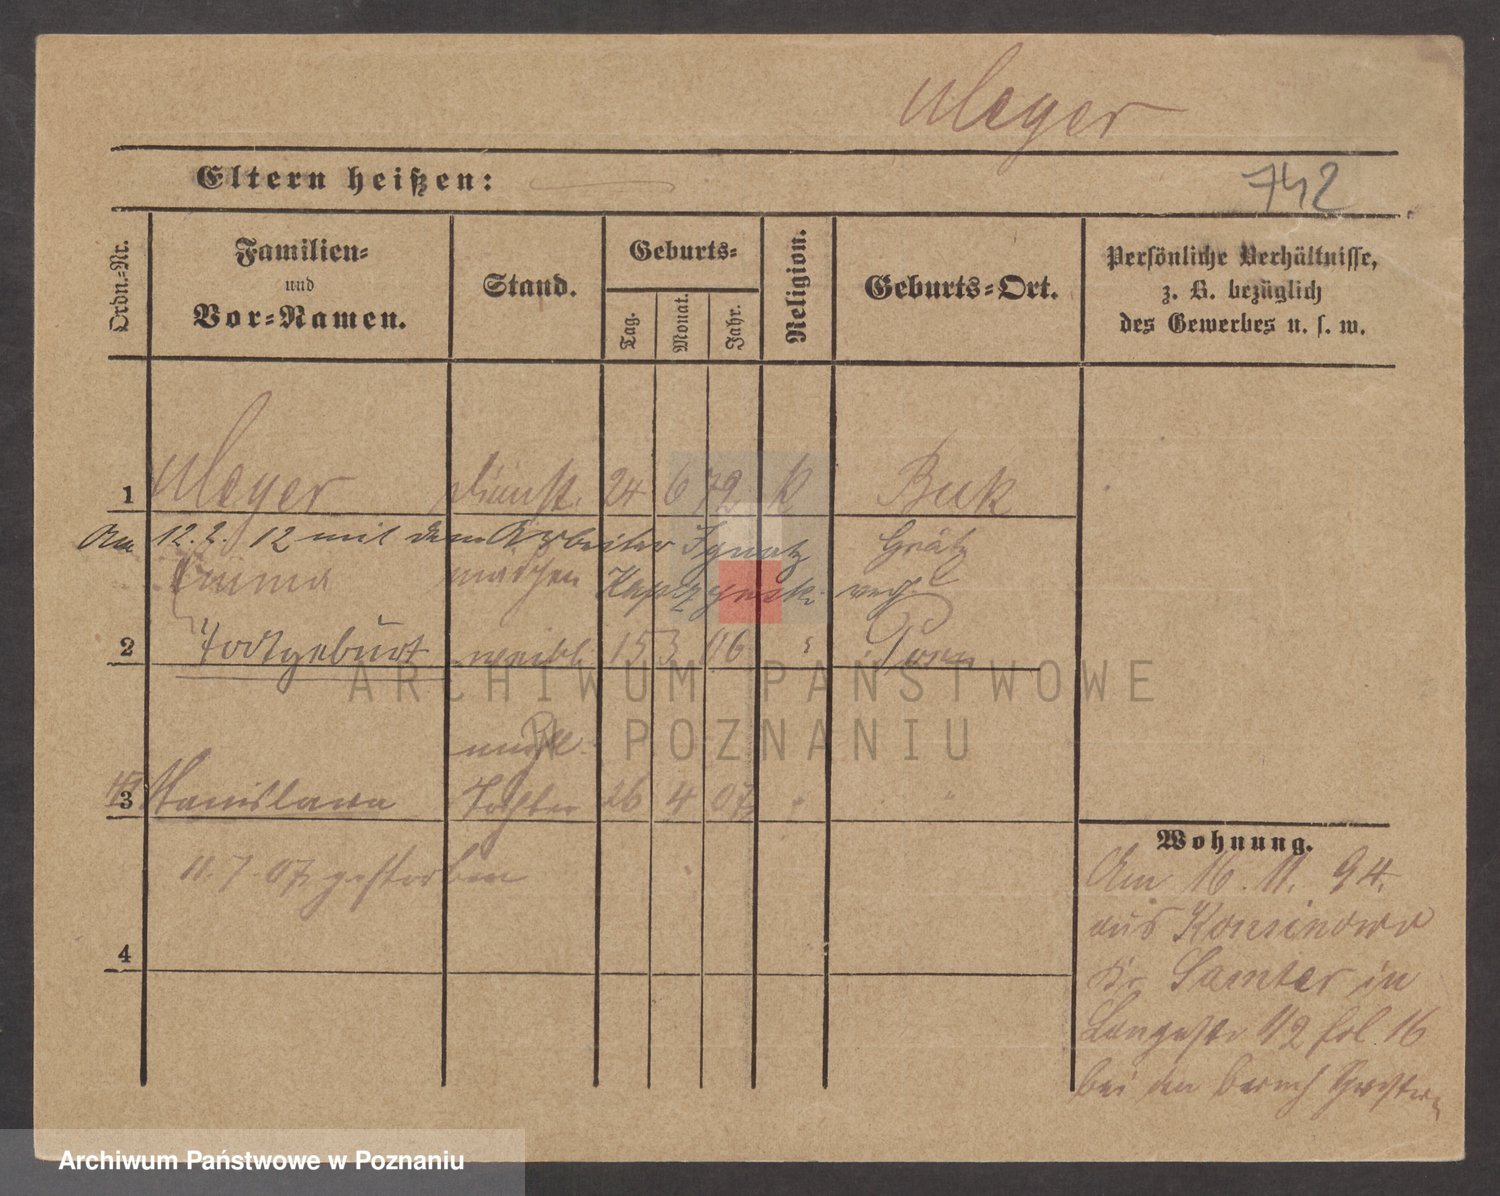 Meyer
Eltern heißen:
742
Ordn.=Nr.
Familien=
und
Vor=Namen.
Stand.
Geburts=
Tag.
Monat.
Jahr.
Religion.
Geburts=Ort.
Persönliche Verhältnisse,
z. B. bezüglich
des Gewerbes u. s. w.
1 Meyer Dienst. 24 6 79 K Buk
Am 12. 2. 12 mit dem Arbeiter Ignatz Grätz
Emma mädchen verh
2 Todtgeburt weibl. 15 3 06 " Posen
unehel.
3 Stanislawa Tochter 26 4 07 " "
11. 7. 07 gestorben
4
Wohnung.
Am 16. 11. 94.
aus
Kr. Samter in
Langestr 112 fol 16
bei
ARCHIWUM PAŃSTWOWE
W POZNANIU
Archiwum Państwowe w Poznaniu